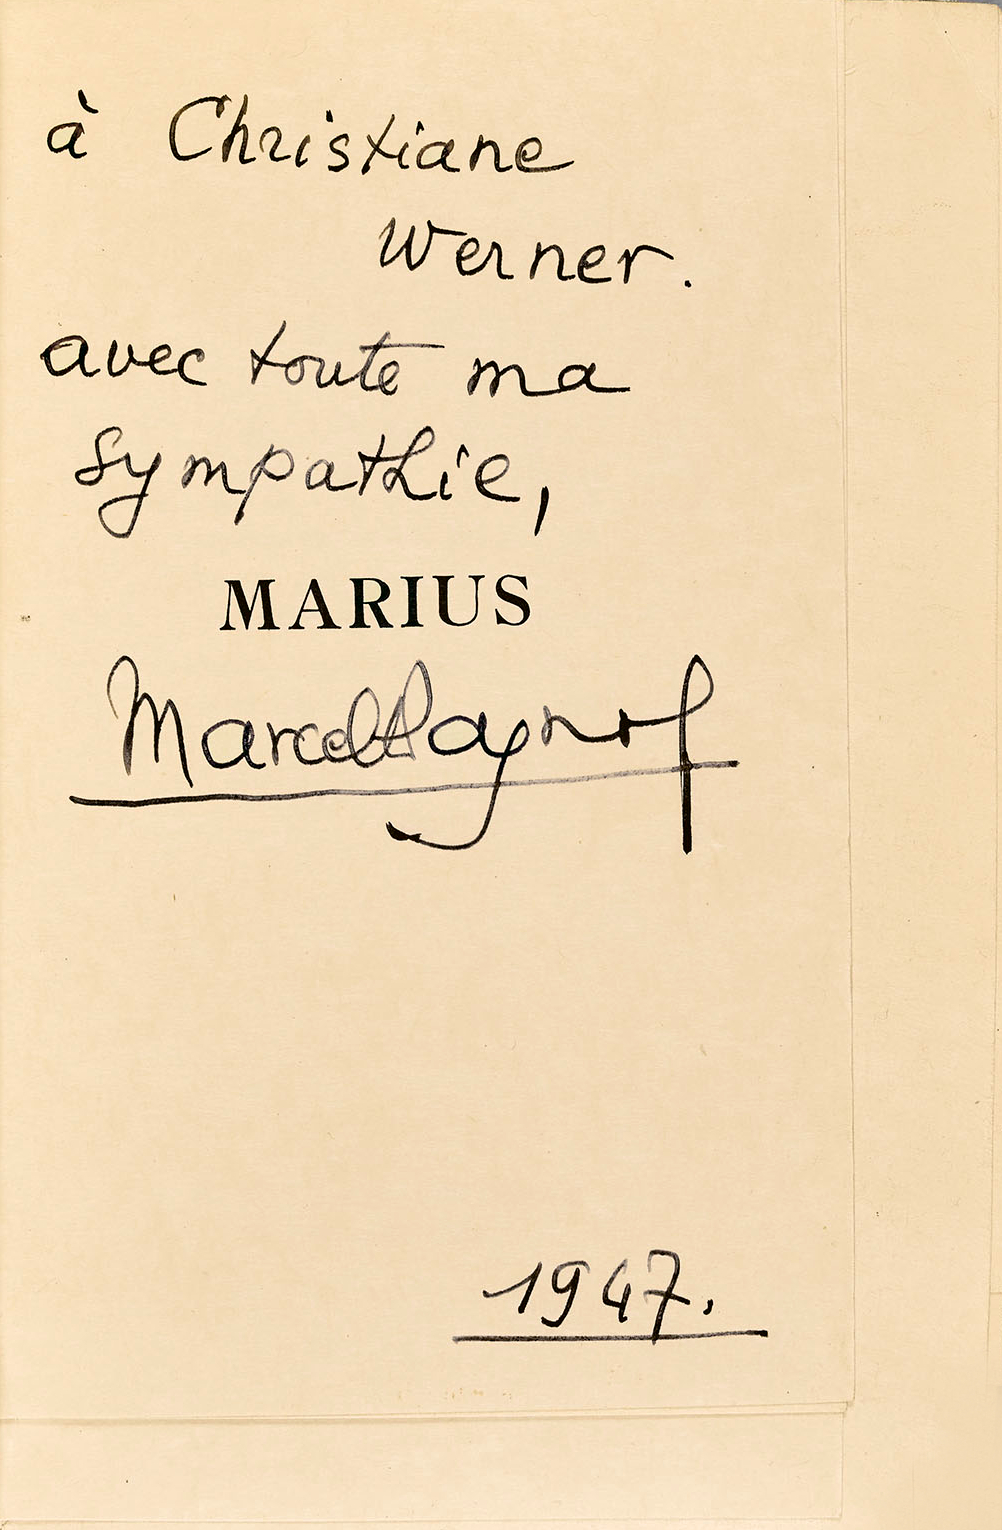 à Christiane
Werner.
avec toute ma
sympathie,
MARIUS
Marcel Pagnol
1947.